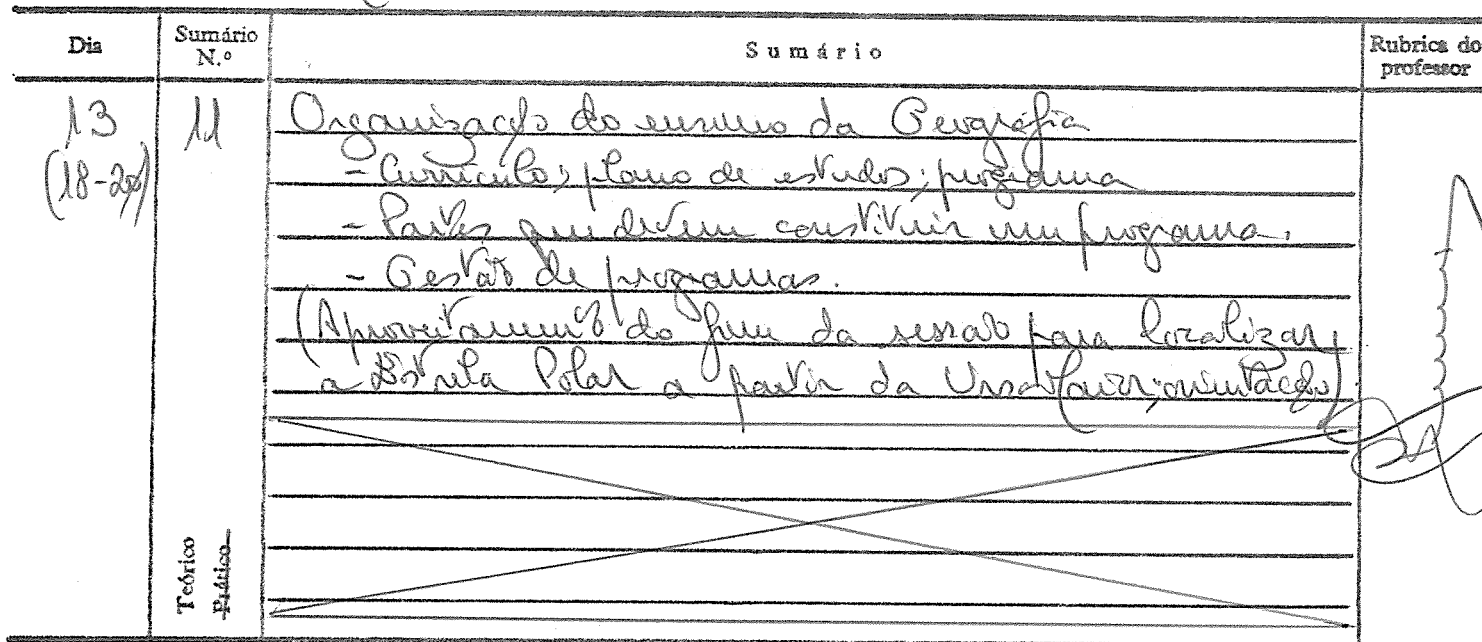 Dia Sumário N.º Sumário Rubrica do professor
13 11 Organização do ensino da Geografia
(18-20) - Currículo; plano de estudos; programa
- Partes que devem constituir um programa.
- Gestão de programas.
(Aproveitamento do fim da sessão para localizar
a Estrela Polar a partir da Ursa Maior; orientação)
Teórico
Prático